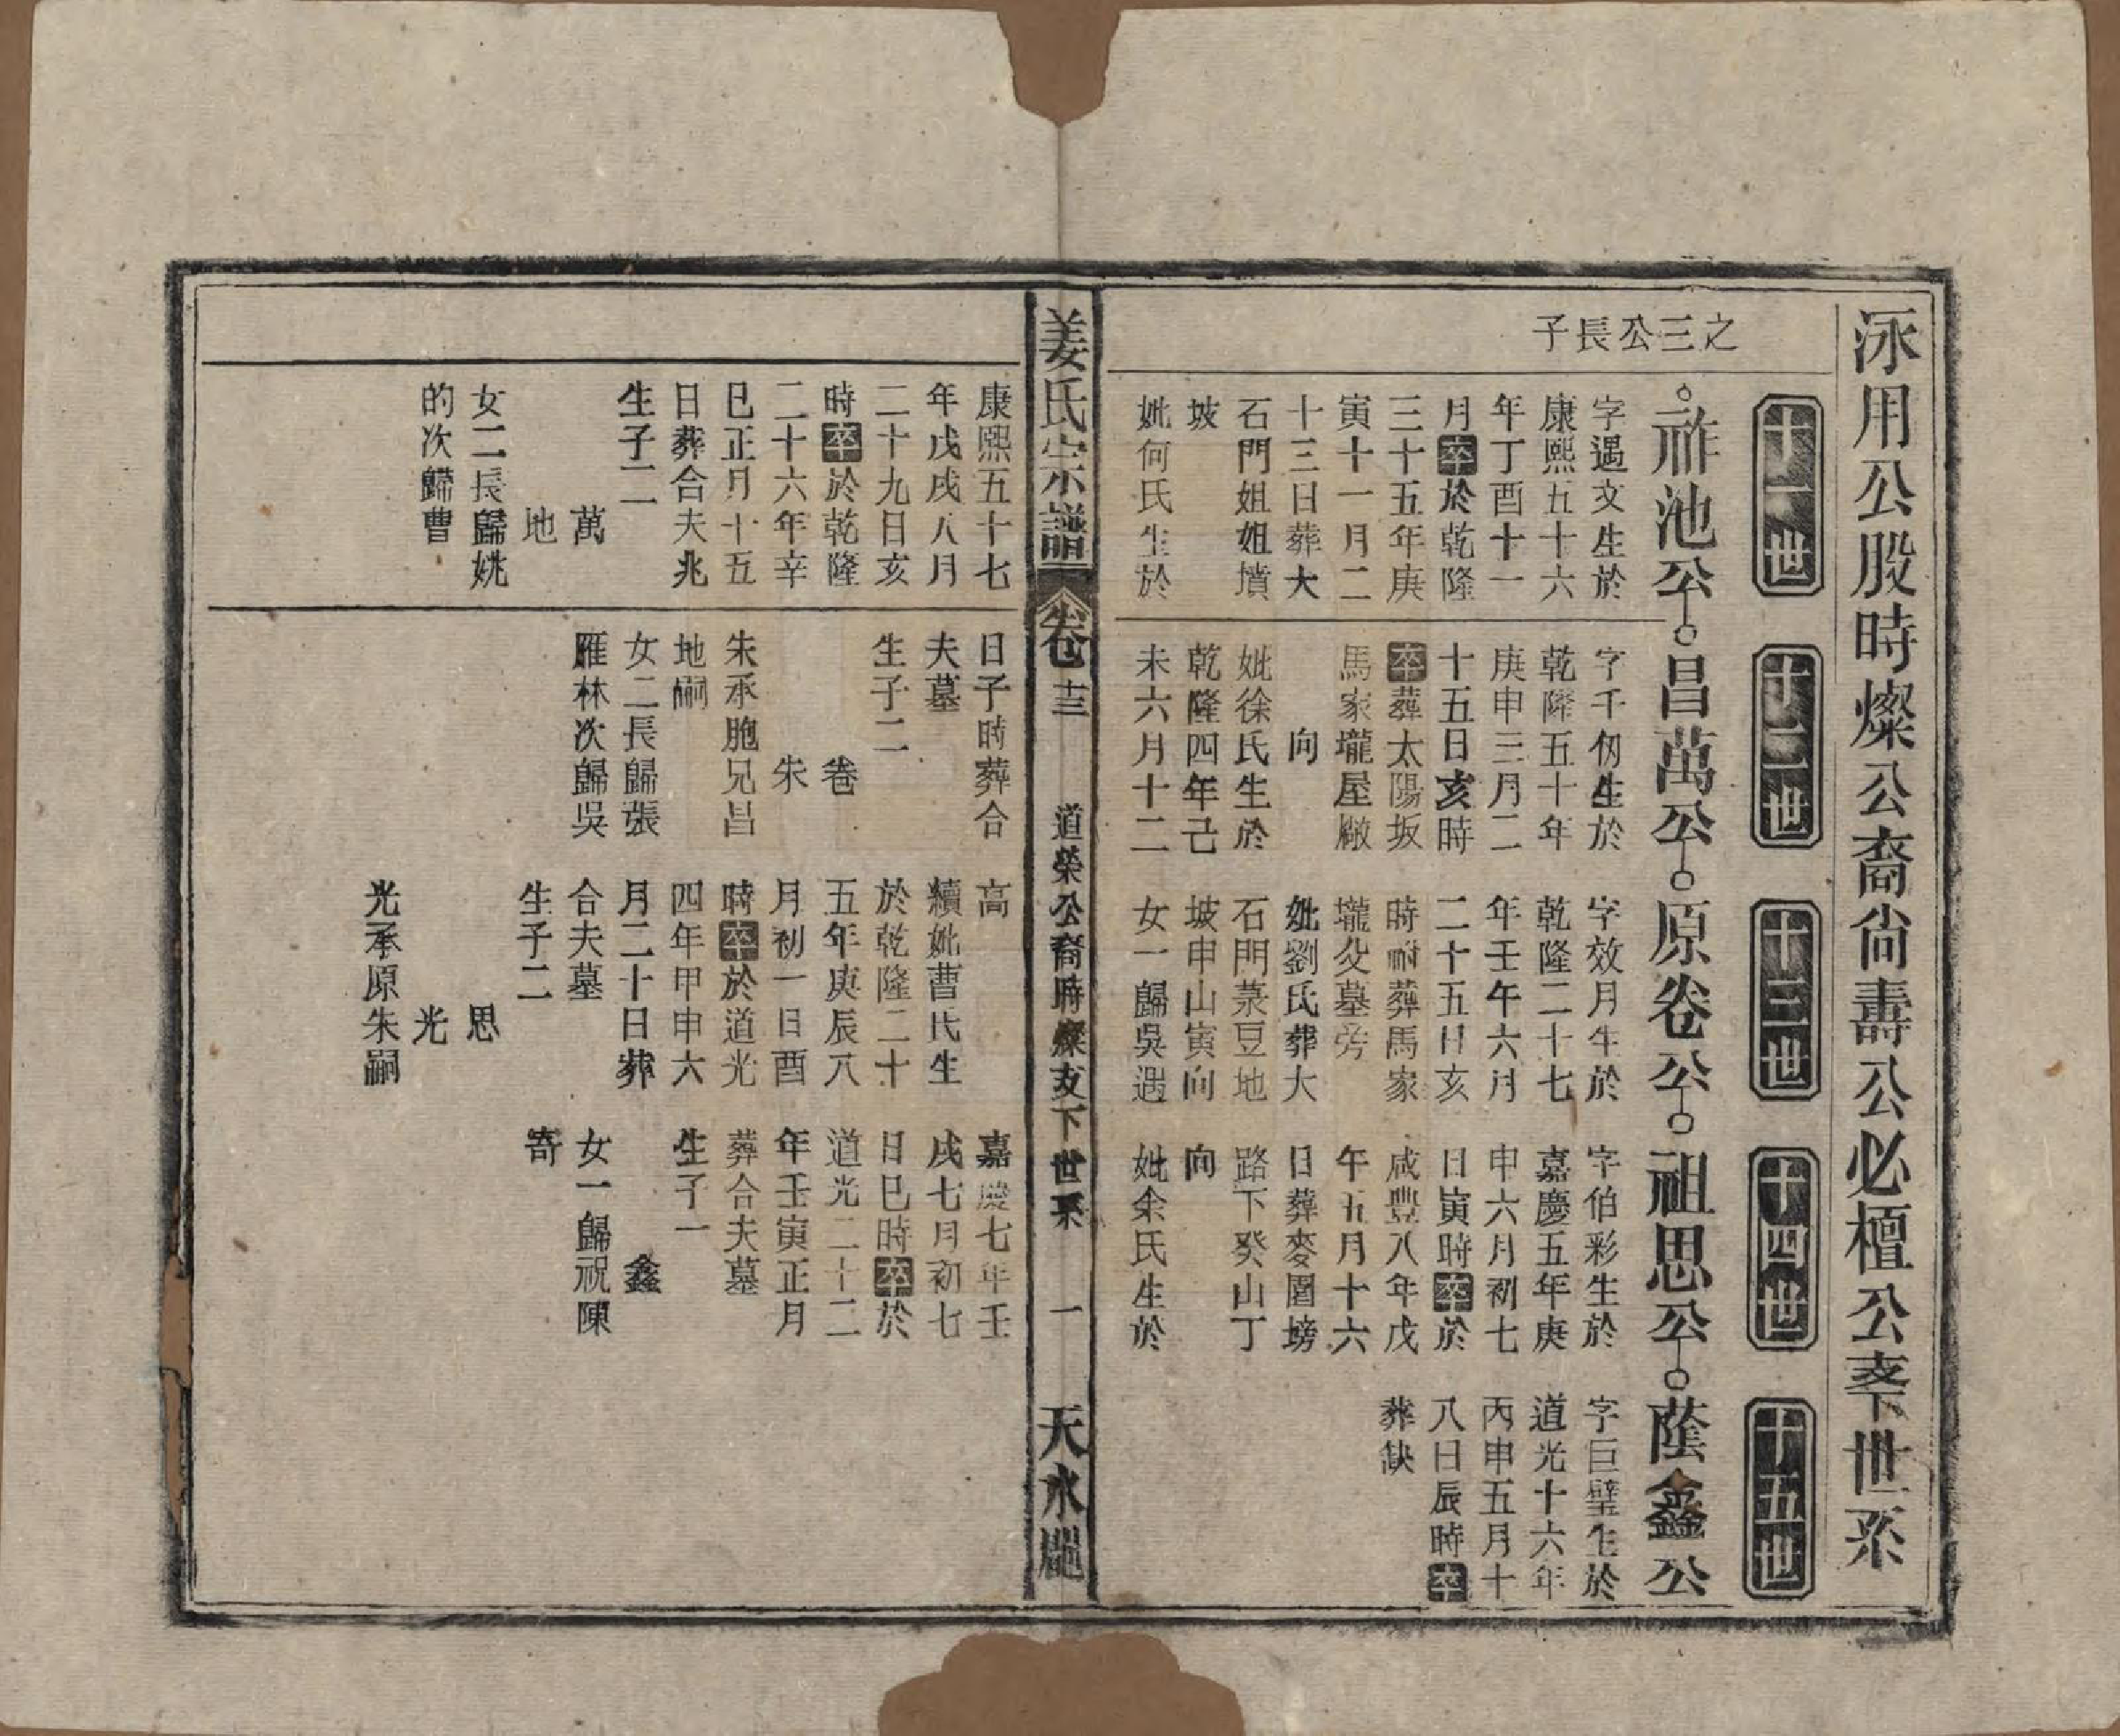 泳用公股時燦公裔尙壽公必檀公支下世系
十一世
十二世
十三世
十四世
十五世
之三公長子
祚池公
字遇文生於
康熙五十六
年丁酉十一
月卒於乾隆
三十五年庚
寅十一月二
十三日葬大
石門姐姐墳
坡
妣何氏生於
昌萬公
字千仞生於
乾隆五十年
庚申三月二
十五日亥時
卒葬太陽坂
馬家壠屋廠
向
妣徐氏生於
乾隆四年己
未六月十二
原卷公
字效月生於
乾隆二十七
年壬午六月
二十五日亥
時祔葬馬家
壠父墓旁
妣劉氏葬大
石門菉豆地
坡申山寅向
女一歸吳遇
祖思公
字伯彩生於
嘉慶五年庚
申六月初七
日寅時卒於
咸豐八年戊
午五月十六
日葬麥園塝
路下癸山丁
向
妣余氏生於
蔭鑫公
字巨璧生於
道光十六年
丙申五月十
八日辰時卒
葬缺
姜氏宗譜
卷十三
道榮公裔時燦支下世系
一
天水郡
康熙五十七
年戊戌八月
二十九日亥
時卒於乾隆
二十六年辛
巳正月十五
日葬合夫兆
生子二
萬
地
女二長歸姚
的次歸曹
日子時葬合
夫墓
生子二
卷
朱
朱承胞兄昌
地嗣
女二長歸張
雁林次歸吳
高
續妣曹氏生
於乾隆二十
五年庚辰八
月初一日酉
時卒於道光
四年甲申六
月二十日葬
合夫墓
生子二
思
光
光承原朱嗣
嘉慶七年壬
戌七月初七
日巳時卒於
道光二十二
年壬寅正月
葬合夫墓
生子一
鑫
女一歸祝陳
寄